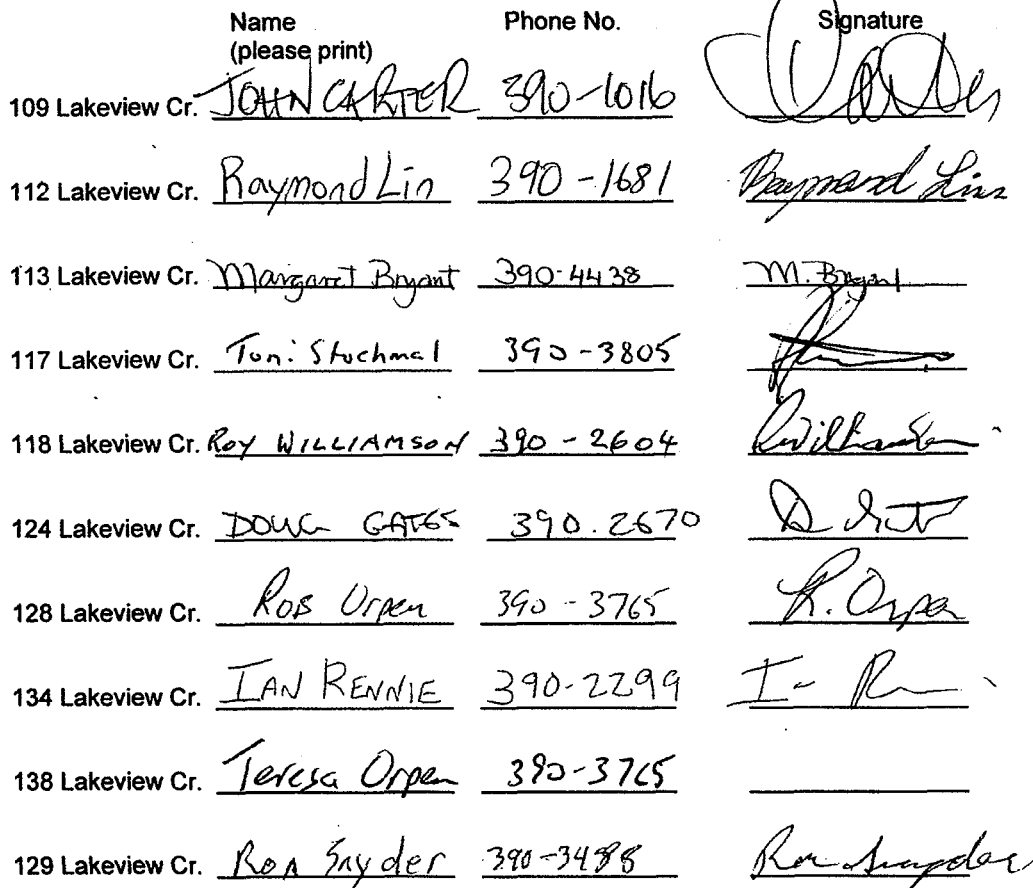 Name Phone No. Signature
(please print)
109 Lakeview Cr. JOHN CARTER 390-1016
112 Lakeview Cr. Raymond Lin 390-1681 Raymond Lin
113 Lakeview Cr. Margaret Bryant 390-4438 M. Bryant
117 Lakeview Cr. Toni Stuchmal 390-3805
118 Lakeview Cr. ROY WILLIAMSON 390-2604 RWilliamson
124 Lakeview Cr. DOUG GATES 390.2670
128 Lakeview Cr. ROB Orpen 390-3765 R. Orpen
134 Lakeview Cr. IAN RENNIE 390-2299
138 Lakeview Cr. Teresa Orpen 390-3765
129 Lakeview Cr. Ron Snyder 390-3488 Ron Snyder